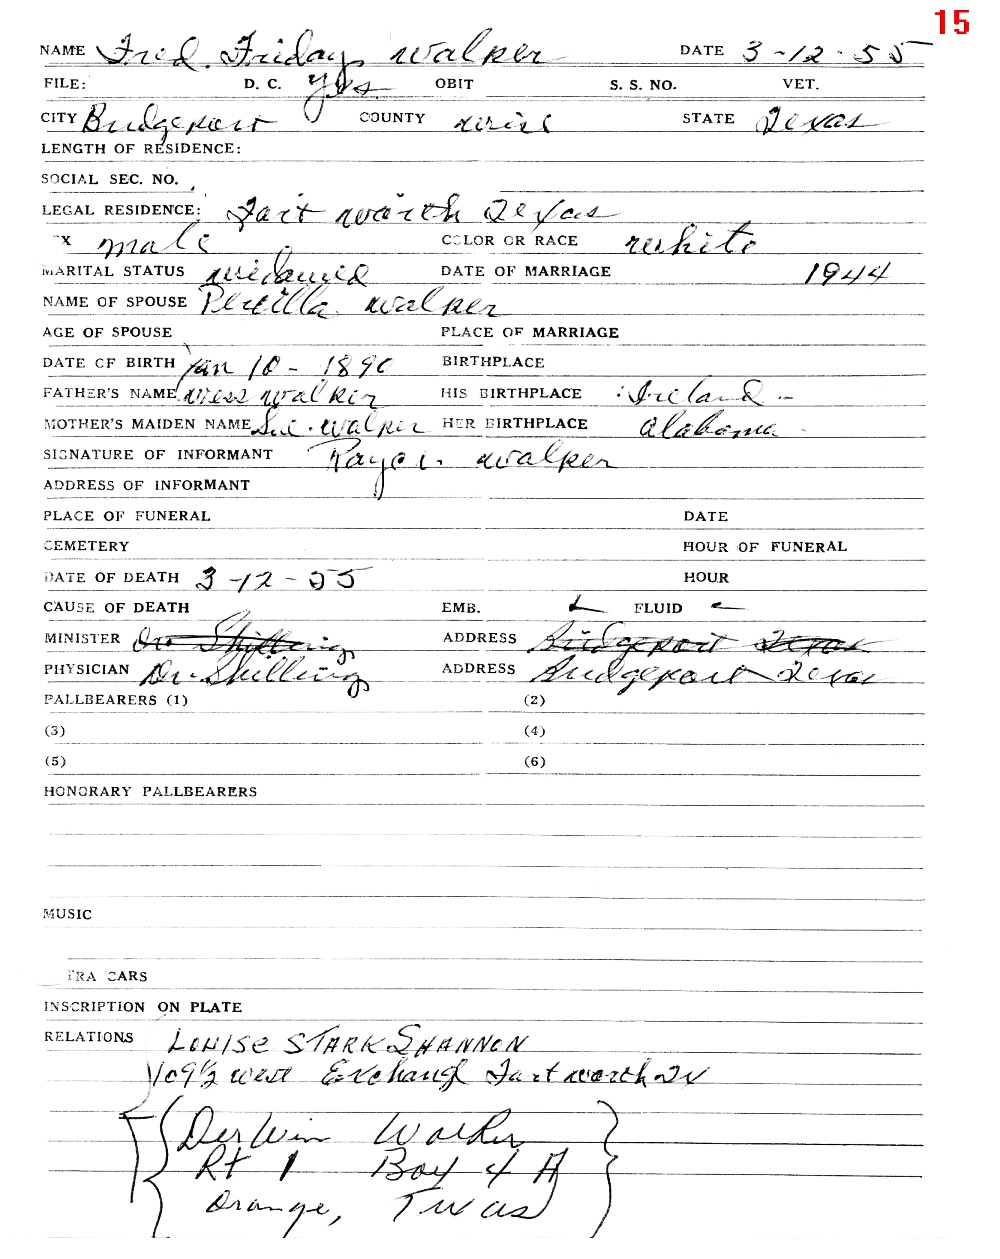 15
NAME Fred. Friday walker DATE 3-12-55
FILE: D. C. yes OBIT S. S. NO. VET.
CITY Bridgeport COUNTY wise STATE Texas
LENGTH OF RESIDENCE:
SOCIAL SEC. NO.
LEGAL RESIDENCE: Fort worth Texas
EX male COLOR OR RACE white
MARITAL STATUS widowed DATE OF MARRIAGE 1944
NAME OF SPOUSE walker
AGE OF SPOUSE PLACE OF MARRIAGE
DATE OF BIRTH Jan 10 - 1890 BIRTHPLACE
FATHER'S NAME wess walker HIS BIRTHPLACE Ireland -
MOTHER'S MAIDEN NAME Sue. walker HER BIRTHPLACE alabama
SIGNATURE OF INFORMANT walker
ADDRESS OF INFORMANT
PLACE OF FUNERAL DATE
CEMETERY HOUR OF FUNERAL
DATE OF DEATH 3-12-55 HOUR
CAUSE OF DEATH EMB. FLUID
MINISTER Dr Shilling ADDRESS Bridgeport Texas
PHYSICIAN Dr. Shilling ADDRESS Bridgeport Texas
PALLBEARERS (1) (2)
(3) (4)
(5) (6)
HONORARY PALLBEARERS
MUSIC
TRA CARS
INSCRIPTION ON PLATE
RELATIONS LOUISE STARK SHANNON
109½ west Exchange Fort worth TX
DerWin Walker
Rt 1 Box 4 A
Orange, Texas